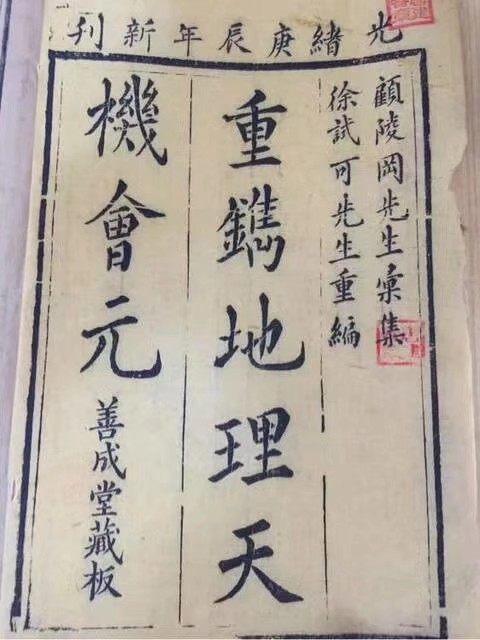 光緒庚辰年新刊
顧陵岡先生彙集
徐試可先生重編
重鐫地理天
機會元
善成堂藏板